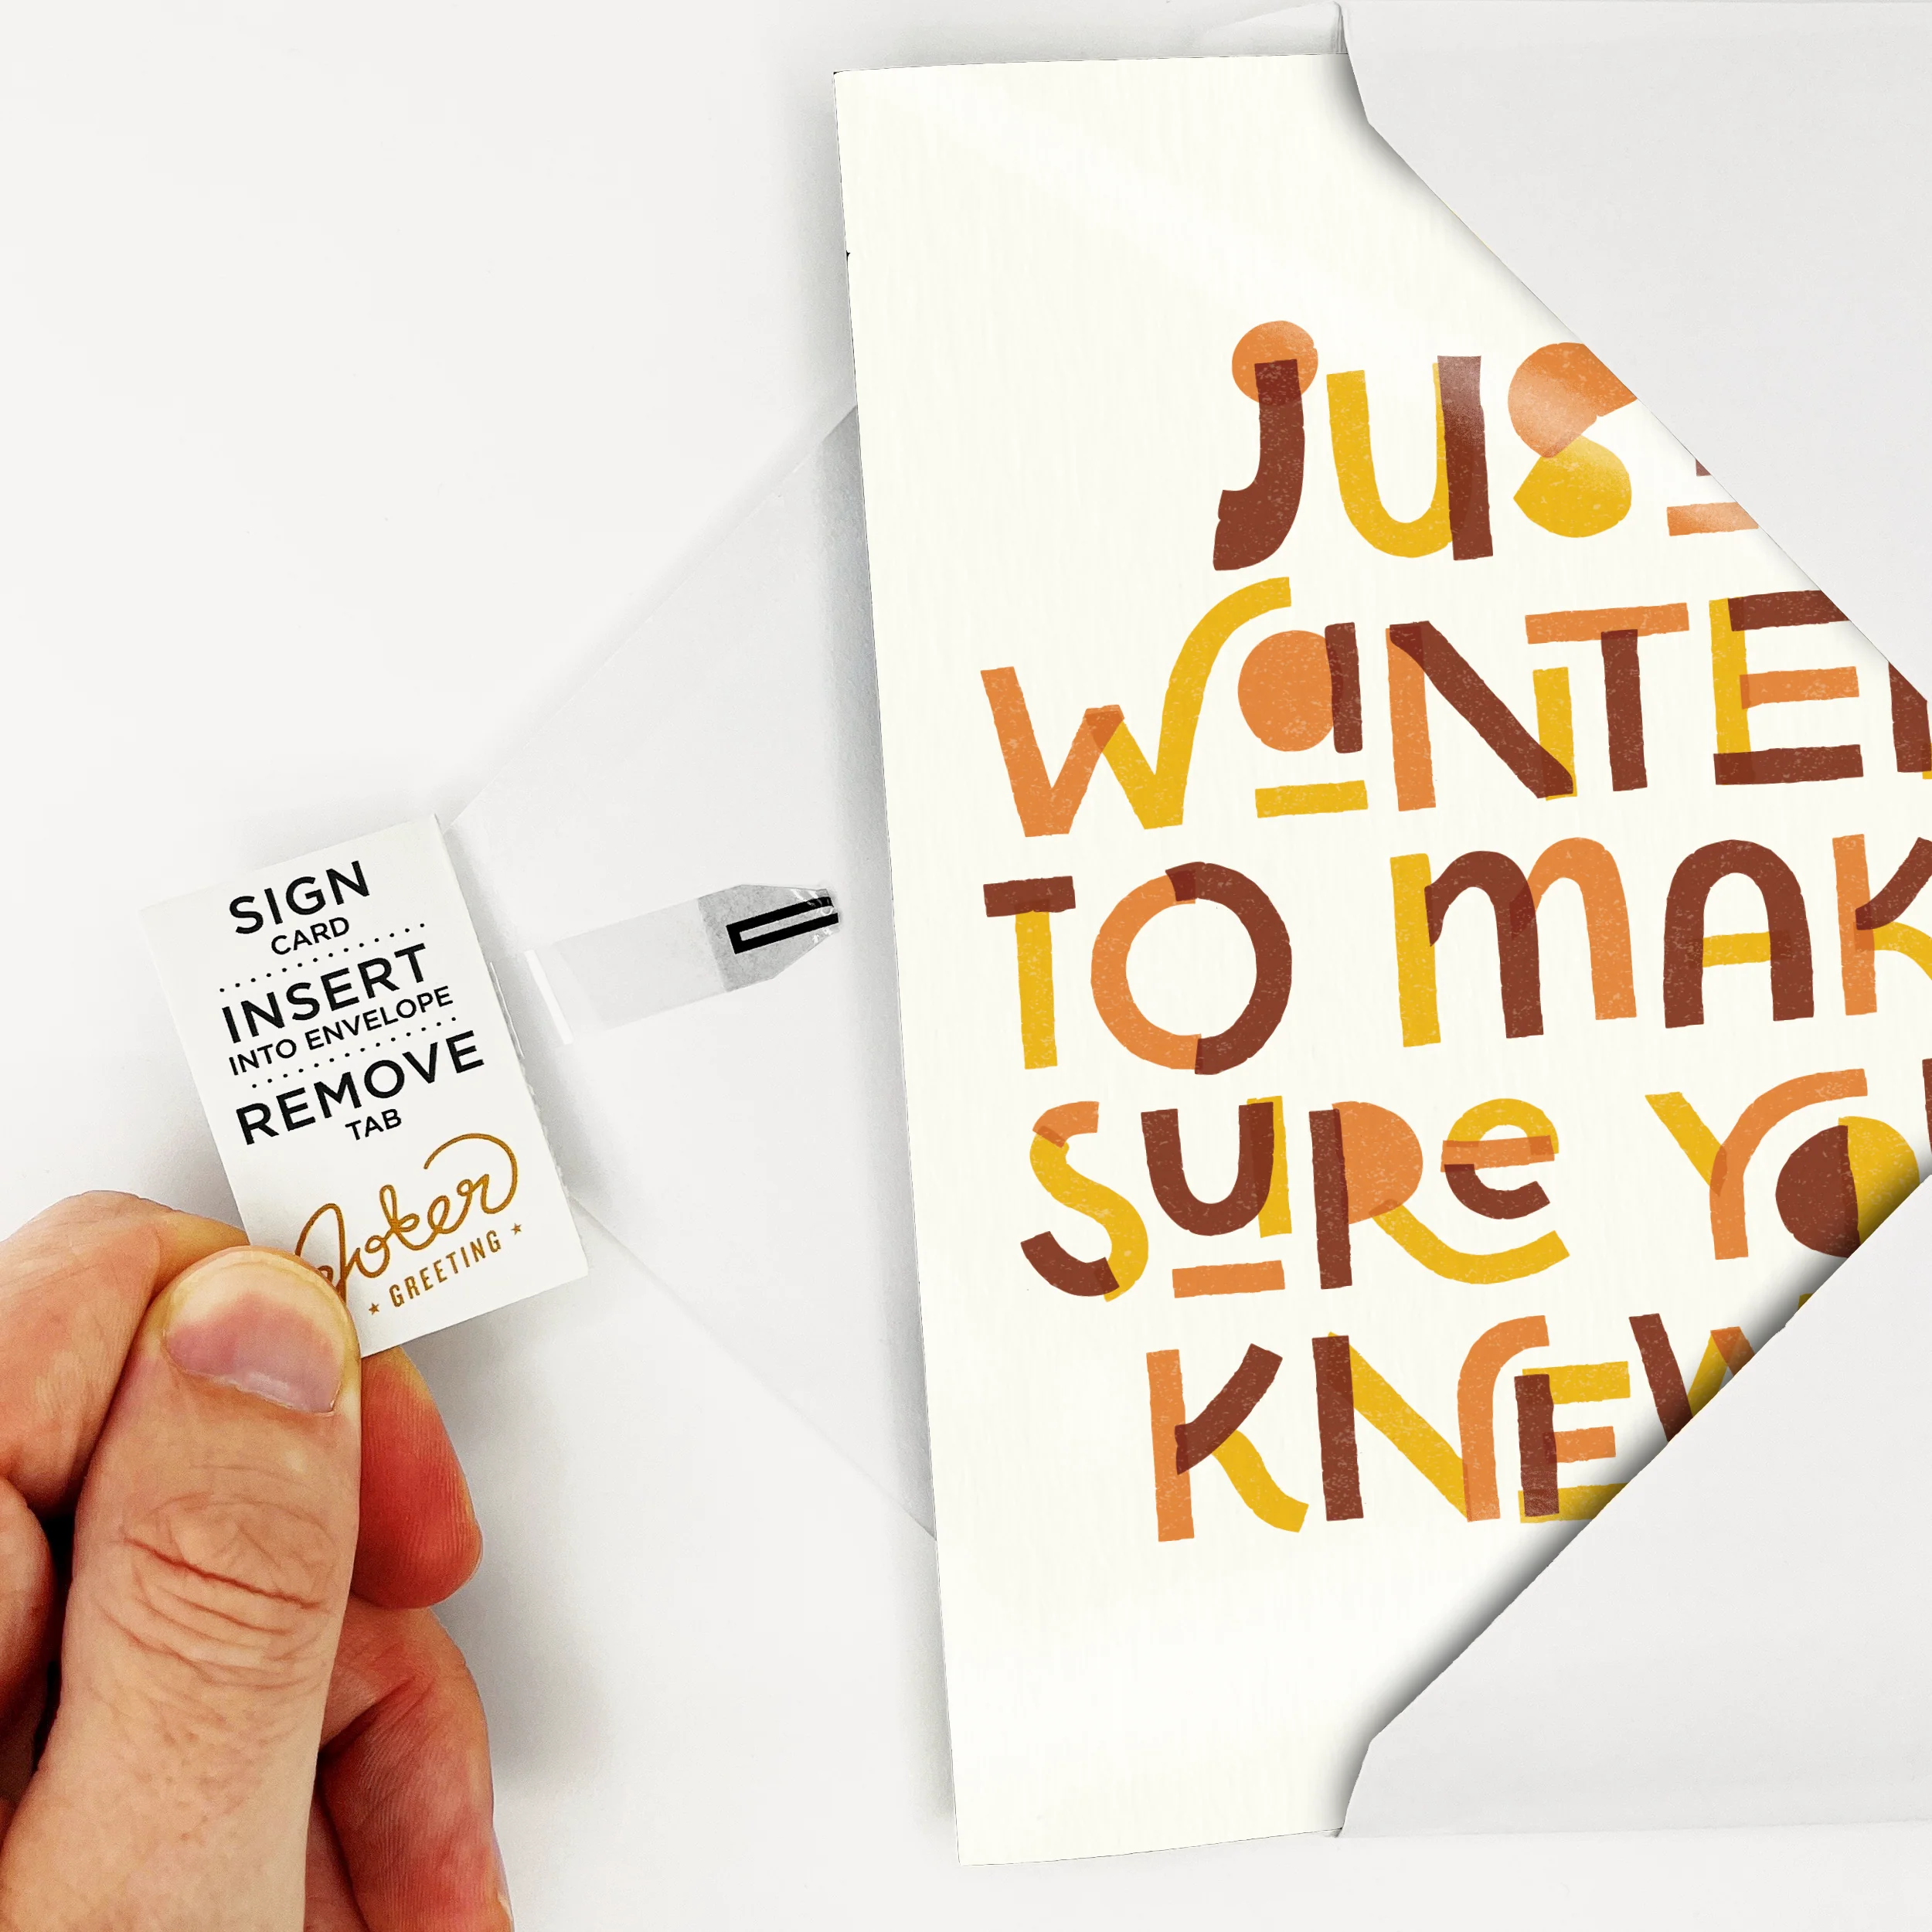 SIGN
CARD
INSERT
INTO ENVELOPE
REMOVE
TAB
Joker
GREETING
JUST
WANTED
TO MAKE
SURE YOU
KNEW